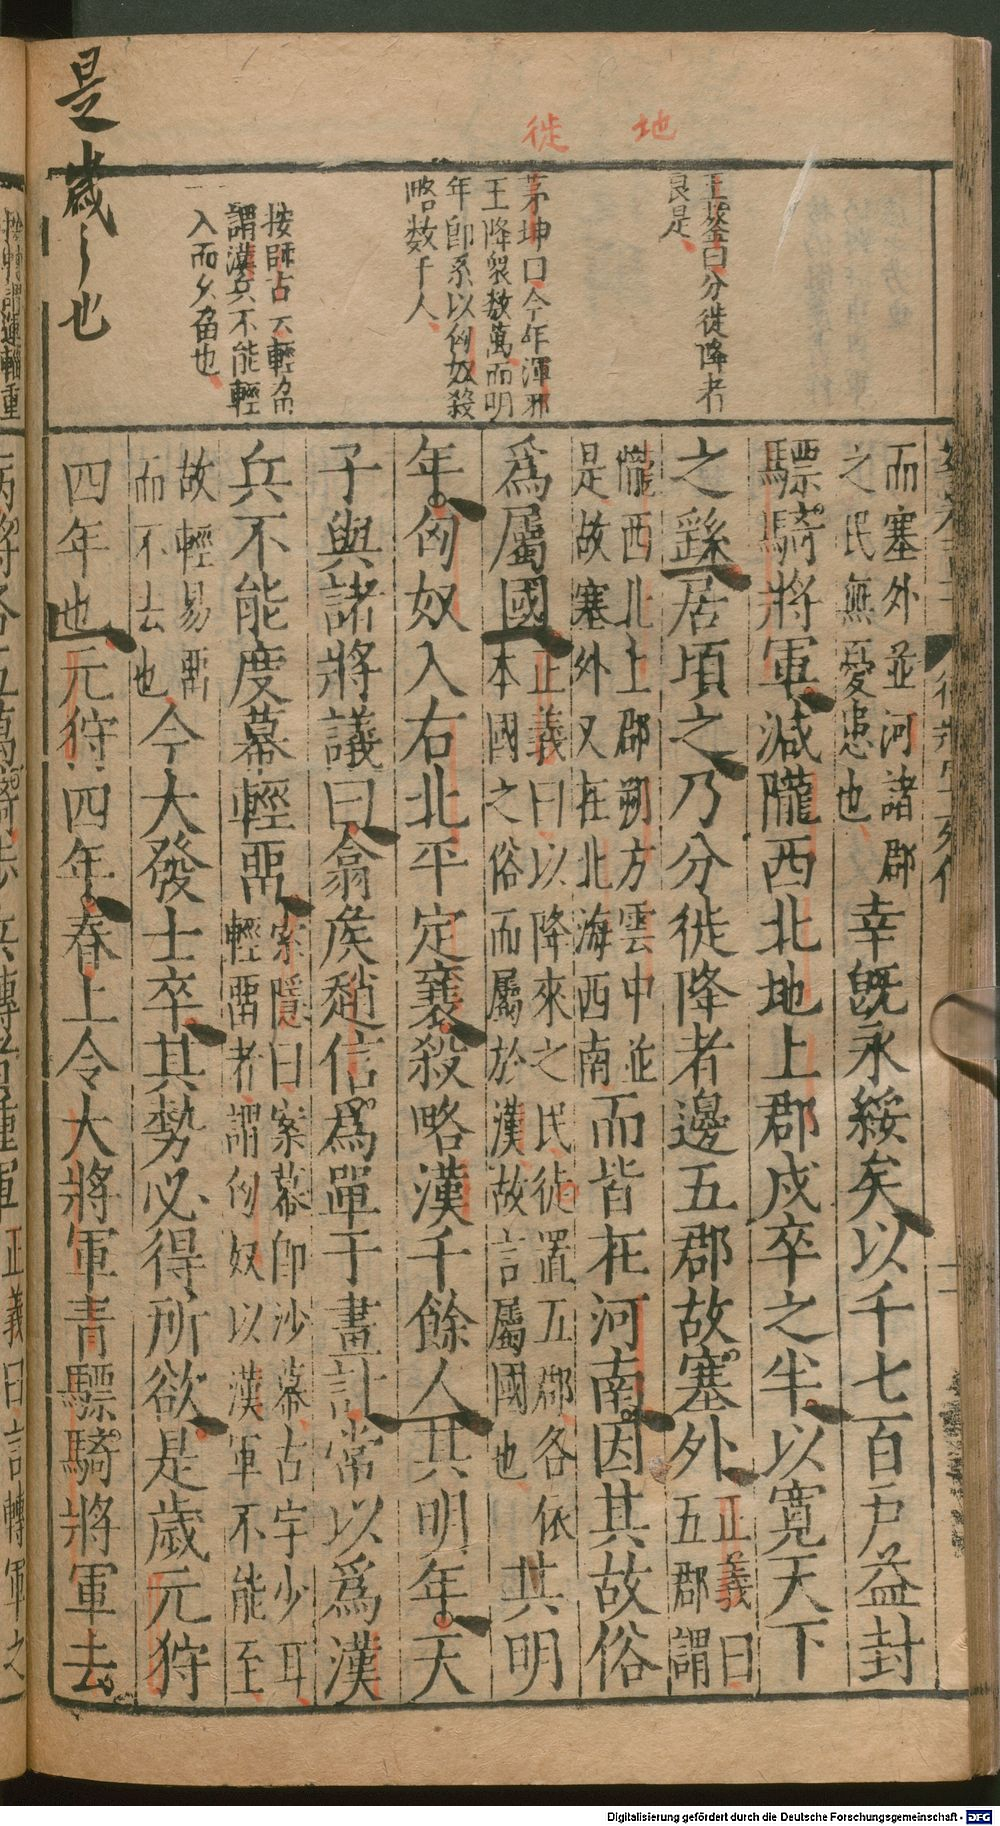 地
徙
王鏊曰分徙降者
良是
茅坤曰今年渾邪
王降衆數萬而明
年即系以匈奴殺
略数千人
按師古云輕畱
謂漢兵不能輕
入而乆畱也
是歲之也
而塞外並河諸郡
之民無憂患也
幸旣永綏矣以千七百戶益封
驃騎將軍減隴西北地上郡戍卒之半以寬天下
之繇居頃之乃分徙降者邊五郡故塞外
正義曰
五郡謂
隴西北上郡朔方雲中並
是故塞外又在北海西南
而皆在河南因其故俗
爲屬國
正義曰以降來之民徙置五郡各依
本國之俗而屬於漢故言屬國也
其明
年匈奴入右北平定襄殺略漢千餘人其明年天
子與諸將議曰翕矦趙信爲單于畫計常以爲漢
兵不能度幕輕畱
索隱曰案幕即沙幕古字少耳
輕畱者謂匈奴以漢軍不能至
故輕易畱
而不去也
今大發士卒其勢必得所欲是歲元狩
四年也元狩四年春上令大將軍青驃騎將軍去
正義曰言轉軍之
Digitalisierung gefördert durch die Deutsche Forschungsgemeinschaft - DFG